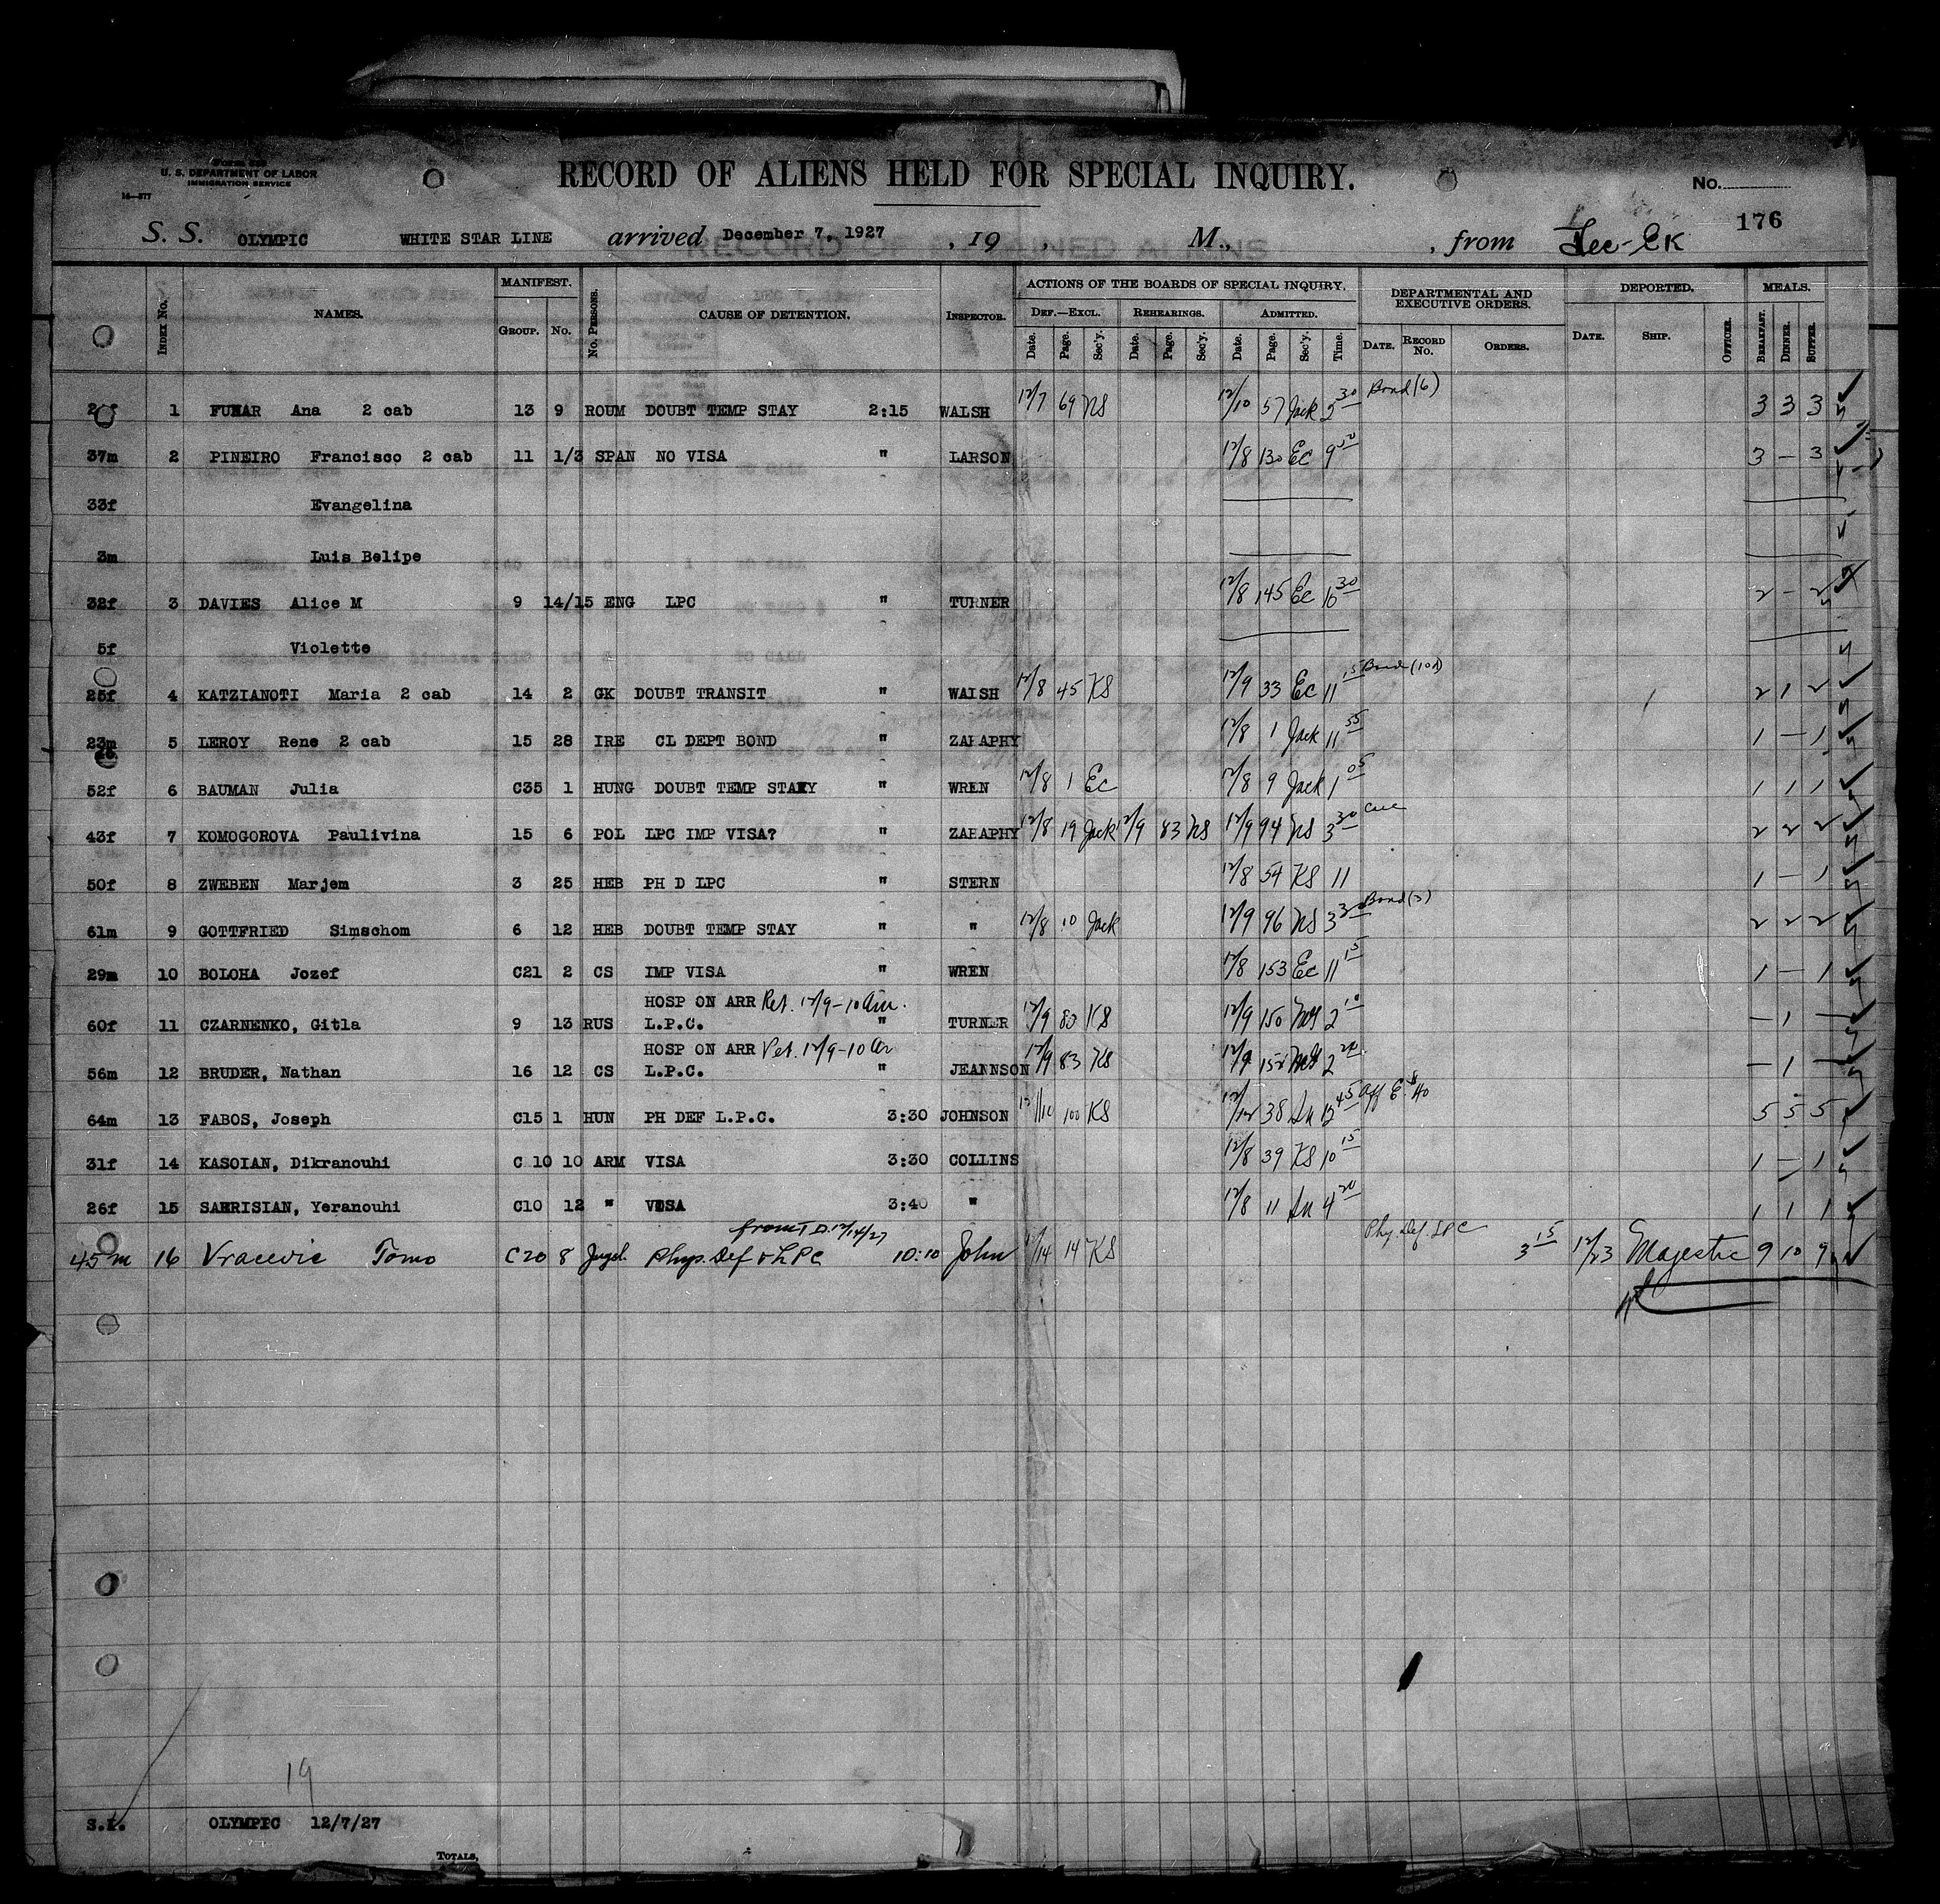 Form 660
U. S. DEPARTMENT OF LABOR
IMMIGRATION SERVICE
16—577
RECORD OF ALIENS HELD FOR SPECIAL INQUIRY.
No.
176
S. S. OLYMPIC WHITE STAR LINE arrived December 7, 1927 , 19 , M., , from
RECORD OF DETAINED ALIENS
Index No. NAMES. MANIFEST. Group. No. No. Persons. CAUSE OF DETENTION. Inspector. ACTIONS OF THE BOARDS OF SPECIAL INQUIRY. Def.—Excl. Date. Page. Sec'y. Rehearings. Date. Page. Sec'y. Admitted. Date. Page. Sec'y. Time. DEPARTMENTAL AND EXECUTIVE ORDERS. Date. Record No. Orders. DEPORTED. Date. Ship. Officer. MEALS. Breakfast. Dinner. Supper.
1 FUNAR Ana 2 cab 13 9 ROUM DOUBT TEMP STAY 2:15 WALSH 12/7 69 NS 12/10 57 Jack 2 30 Bond (6) 3 3 3
37m 2 PINEIRO Francisco 2 cab 11 1/3 SPAN NO VISA " LARSON 12/8 130 EC 9 3 — 3
33f Evangelina
3m Luis Belipe
32f 3 DAVIES Alice M 9 14/15 ENG LPC " TURNER 12/8 145 EC 10 30 2 — 2
5f Violette
25f 4 KATZIANOTI Maria 2 cab 14 2 GK DOUBT TRANSIT " WALSH 12/8 45 KS 12/9 33 EC 11 15 Bond 2 1 2
23m 5 LEROY Rene 2 cab 15 28 IRE CL DEPT BOND " ZARAPHY 12/8 1 Jack 11 55 1 — 1
52f 6 BAUMAN Julia C35 1 HUNG DOUBT TEMP STAXY " WREN 12/8 1 EC 12/8 9 Jack 1 05 1 1 1
43f 7 KOMOGOROVA Paulivina 15 6 POL LPC IMP VISA? " ZARAPHY 12/8 19 Jack 12/9 83 NS 12/9 94 NS 3 30 2 2 2
50f 8 ZWEBEN Marjem 3 25 HEB PH D LPC " STERN 12/8 54 KS 11 1 — 1
61m 9 GOTTFRIED Simschom 6 12 HEB DOUBT TEMP STAY " " 12/8 10 Jack 12/9 96 NS 3 30 Bond 2 2 2
29m 10 BOLOHA Jozef C21 2 CS IMP VISA " WREN 12/8 153 EC 11 15 1 — 1
HOSP ON ARR Ret. 12/9-10 am.
60f 11 CZARNENKO, Gitla 9 13 RUS L.P.C. " TURNER 12/9 80 KS 12/9 150 2 10 — 1 —
HOSP ON ARR Ret. 12/9-10
56m 12 BRUDER, Nathan 16 12 CS L.P.C. " JEANNSON 12/9 83 KS 12/9 2 20 — 1 —
64m 13 FABOS, Joseph C15 1 HUN PH DEF L.P.C. 3:30 JOHNSON 12/10 100 KS 12/12 38 12 45 5 5 5
31f 14 KASOIAN, Dikranouhi C 10 10 ARM VISA 3:30 COLLINS 12/8 39 KS 10 15 1 — 1
26f 15 SARRISIAN, Yeranouhi C10 12 " VISA 3:40 " 12/8 11 4 20 1 1 1
from T.D. 12/14/27
45m 16 Vracevic Tomo C20 8 Jugol. Phys. Def & LPC 10:10 John 12/14 14 KS Phy. Def. LPC 3 15 12/23 Majestic 9 10 9
19
S.I. OLYMPIC 12/7/27
Totals,